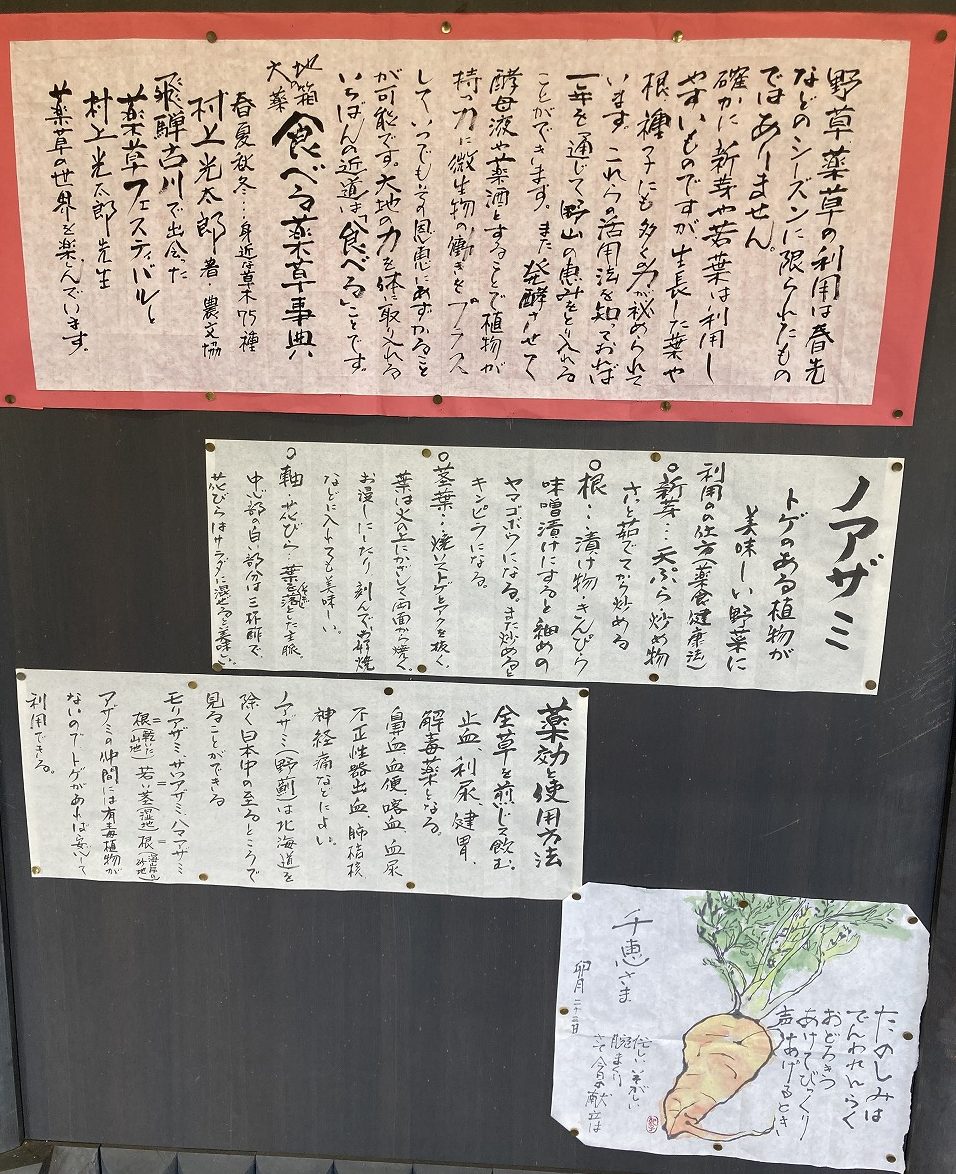 野草薬草の利用は春先
などのシーズンに限られたもの
ではありません。
確かに新芽や若葉は利用し
やすいものですが生長した葉や
根、種子にも多くの力が秘められて
います。これらの活用法を知っておれば
一年を通じて野山の恵みをとり入れる
ことができます。また、発酵させて
酵母液や薬酒とすることで植物が
持つ力に微生物の働きをプラス
して、いつでもその恩恵にあずかること
が可能です。大地の力を体に取り入れる
いちばんの近道は「食べる」ことです。
大地の薬箱 食べる薬草事典
春夏秋冬…身近な草木75種
村上光太郎 著・農文協
飛騨古川で出会った
薬草フェスティバルと
村上光太郎先生
薬草の世界を楽しんでいます。
ノアザミ
トゲのある植物が
美味しい野菜に
利用の仕方(薬食健康法)
○新芽…天ぷら、炒め物
さっと茹でてから炒める
○根…漬け物・きんぴら
味噌漬けにすると細めの
ヤマゴボウになる。また炒めると
キンピラになる。
○茎葉…焼いてトゲとアクを抜く。
葉は火の上にかざして両面から焼く。
お浸しにしたり、刻んでお好焼
などに入れても美味しい。
○軸・花びら…葉を落とした主脈。
中心部の白い部分は三杯酢で、
花びらはサラダに混ぜると美味しい。
薬効と使用方法
全草を煎じて飲む。
止血、利尿、健胃、
解毒薬となる。
鼻血、血便、喀血、血尿
不正性器出血、肺結核、
神経痛などによい。
ノアザミ(野薊)は北海道を
除く日本中の至るところで
見ることができる
モリアザミ・サワアザミ、ハマアザミ
根(乾いた山地) 若い茎(湿地) 根(海岸の砂地)
アザミの仲間には有毒植物が
ないのでトゲがあれば安心して
利用できる。
たのしみは
でんわれんらく
おどろきつ
あけてびっくり
声をあげるとき
千恵さま
卯月二十三日
忙しい、忙しい
腕まくり
さて今日の献立は